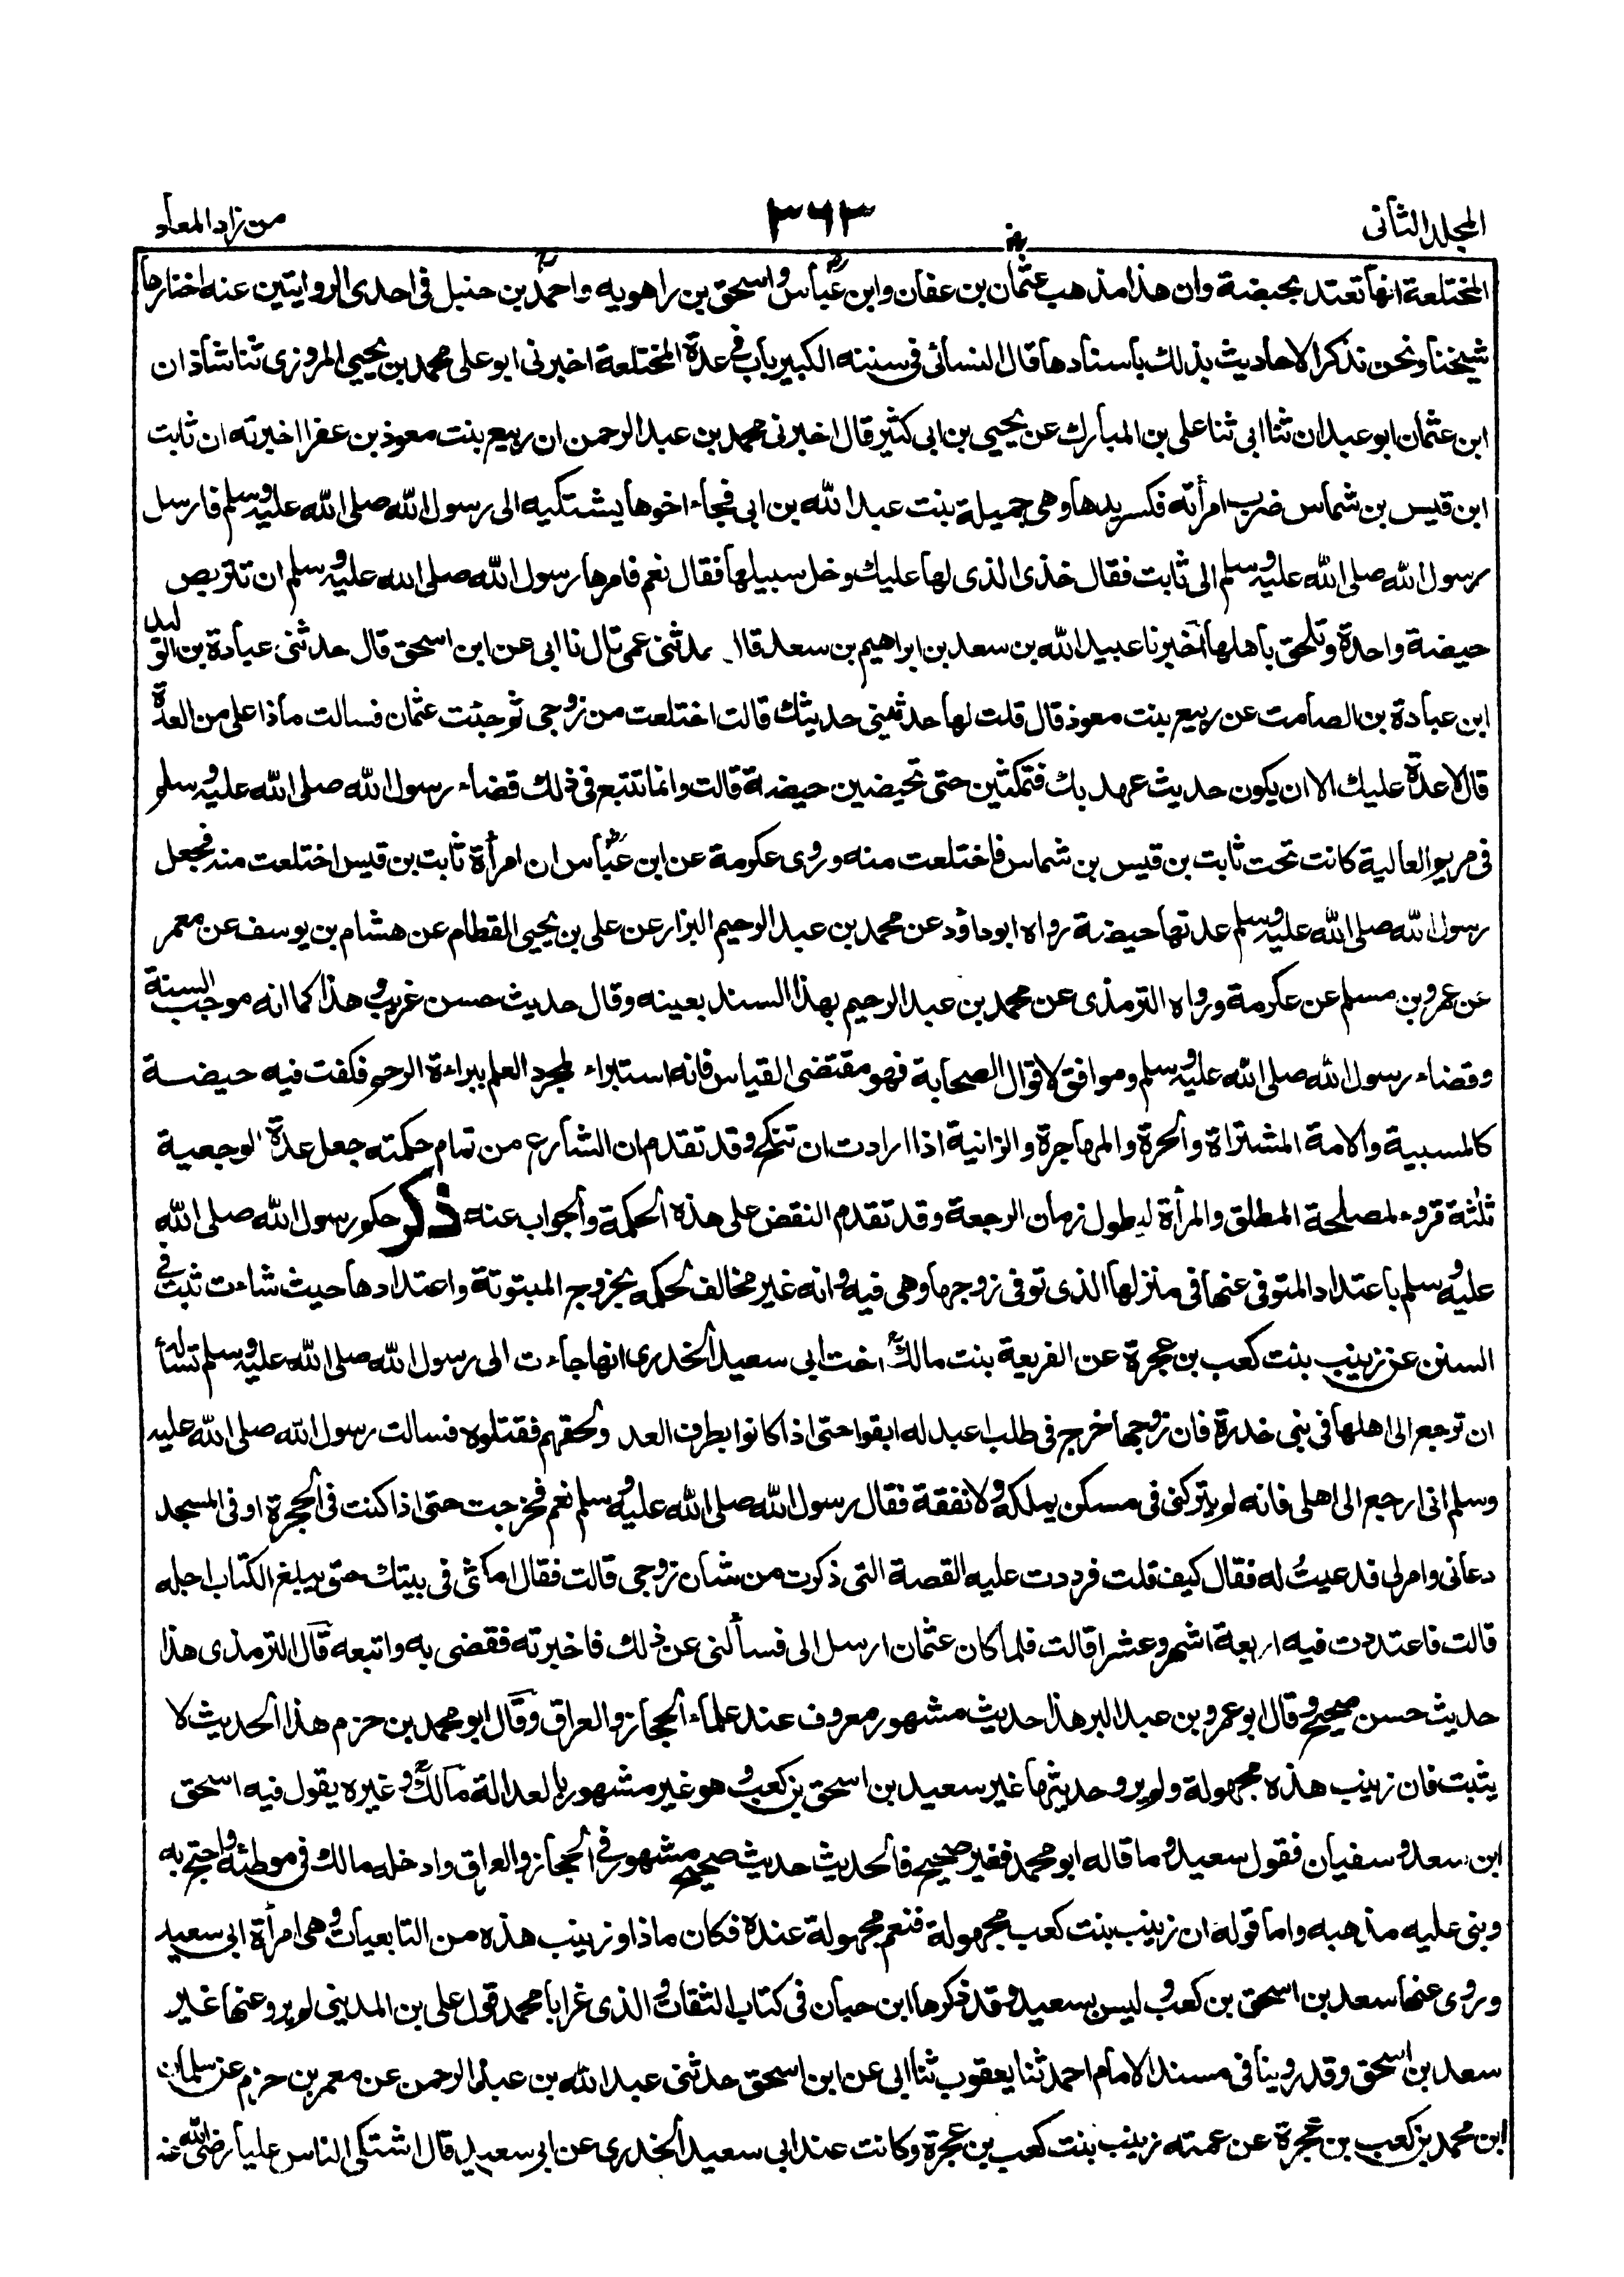 المجلد الثانى
٣٦٣
من زاد المعاد
المختلعة انها تعتد بحيضة وان هذا مذهب عثمان بن عفان وابن عباس واسحق بن راهويه واحمد بن حنبل فى احدى الروايتين عنه اختارها
شيخنا ونحن نذكر الاحاديث بذلك باسنادها قال النسائى فى سننه الكبير باب فى عدة المختلعة اخبرنى ابو على محمد بن يحيى المروزى ثنا شاذان
ابن عثمان ابو عبدان ثنا ابى ثنا على بن المبارك عن يحيى بن ابى كثير قال اخبرنى محمد بن عبد الرحمن ان ربيع بنت معوذ بن عفرا اخبرته ان ثابت
ابن قيس بن شماس ضرب امرأته فكسر يدها وهى جميلة بنت عبد الله بن ابى فجاء اخوها يشتكيه الى رسول الله صلى الله عليه وسلم فارسل
رسول الله صلى الله عليه وسلم الى ثابت فقال خذى الذى لها عليك وخل سبيلها فقال نعم فامرها رسول الله صلى الله عليه وسلم ان تتربص
حيضة واحدة وتلحق باهلها اخبرنا عبيد الله بن سعد بن ابراهيم بن سعد قال حدثنى عمى قال نا ابى عن ابن اسحق قال حدثنى عبادة بن الوليد
ابن عبادة بن الصامت عن ربيع بنت معوذ قال قلت لها حدثينى حديثك قالت اختلعت من زوجى ثم جئت عثمان فسالت ماذا على من العدة
قال لا عدة عليك الا ان يكون حديث عهد بك فتمكثين حتى تحيضين حيضة قالت وانما تتبع فى ذلك قضاء رسول الله صلى الله عليه وسلم
فى مريم العالية كانت تحت ثابت بن قيس بن شماس فاختلعت منه وروى عكرمة عن ابن عباس ان امرأة ثابت بن قيس اختلعت منه فجعل
رسول الله صلى الله عليه وسلم عدتها حيضة رواه ابو داؤد عن محمد بن عبد الرحيم البزار عن على بن يحيى القطام عن هشام بن يوسف عن معمر
عن عمرو بن مسلم عن عكرمة ورواه الترمذى عن محمد بن عبد الرحيم بهذا السند بعينه وقال حديث حسن غريب وهذا كما انه موجب السنة
وقضاء رسول الله صلى الله عليه وسلم وموافق لاقوال الصحابة فهو مقتضى القياس فانه استبراء لمجرد العلم ببراءة الرحم فكفت فيه حيضة
كالمسبية والامة المشتراة والحرة والمهاجرة والزانية اذا ارادت ان تنكح وقد تقدم ان الشارع من تمام حكمته جعل عدة الرجعية
ثلثة قروء لمصلحة المطلق والمرأة ليطول زمان الرجعة وقد تقدم النقض على هذه الحكمة والجواب عنه ذكر حكم رسول الله صلى الله
عليه وسلم باعتداد المتوفى عنها فى منزلها الذى توفى زوجها وهى فيه وانه غير مخالف لحكمه بخروج المبتوتة واعتدادها حيث شاءت ثبت فى
السنن عن زينب بنت كعب بن عجرة عن الفريعة بنت مالك اخت ابى سعيد الخدرى انها جاءت الى رسول الله صلى الله عليه وسلم تسأله
ان ترجع الى اهلها فى بنى خدرة فان زوجها خرج فى طلب اعبد له ابقوا حتى اذا كانوا بطرف العد ولحقهم فقتلوه فسالت رسول الله صلى الله عليه
وسلم انى ارجع الى اهلى فانه لم يتركنى فى مسكن يملكه ولا نفقة فقال رسول الله صلى الله عليه وسلم نعم فخرجت حتى اذا كنت فى الحجرة او فى المسجد
دعانى وامر لى فدعيت له فقال كيف قلت فرددت عليه القصة التى ذكرت من شان زوجى قالت فقال امكثى فى بيتك حتى يبلغ الكتاب اجله
قالت فاعتددت فيه اربعة اشهر وعشرا قالت فلما كان عثمان ارسل الى فسألنى عن ذلك فاخبرته فقضى به واتبعه قال الترمذى هذا
حديث حسن صحيح وقال ابو عمرو بن عبد البر هذا حديث مشهور معروف عند علماء الحجاز والعراق وقال ابو محمد بن حزم هذا الحديث لا
يثبت فان زينب هذه مجهولة ولم يرو حديثها غير سعيد بن اسحق بن كعب وهو غير مشهور بالعدالة مالك وغيره يقول فيه اسحق
ابن سعد وسفيان فقول سعيد وما قاله ابو محمد فغير صحيح فالحديث حديث صحيح مشهور فى الحجاز والعراق وادخله مالك فى موطئه واحتج به
وبنى عليه مذهبه واما قوله ان زينب بنت كعب مجهولة فنعم مجهولة عنده فكان ماذا وزينب هذه من التابعيات وهى امرأة ابى سعيد
وروى عنها سعد بن اسحق بن كعب وليس بسعيد وقد ذكرها ابن حبان فى كتاب الثقات والذى غر ابا محمد قول على بن المدينى لم يرو عنها غير
سعد بن اسحق وقد روينا فى مسند الامام احمد ثنا يعقوب ثنا ابى عن ابن اسحق حدثنى عبد الله بن عبد الرحمن عن معمر بن حزم عن سلمان
ابن محمد بن كعب بن عجرة عن عمته زينب بنت كعب بن عجرة وكانت عند ابى سعيد الخدرى عن ابى سعيد قال اشتكى الناس عليا رضى الله عنه